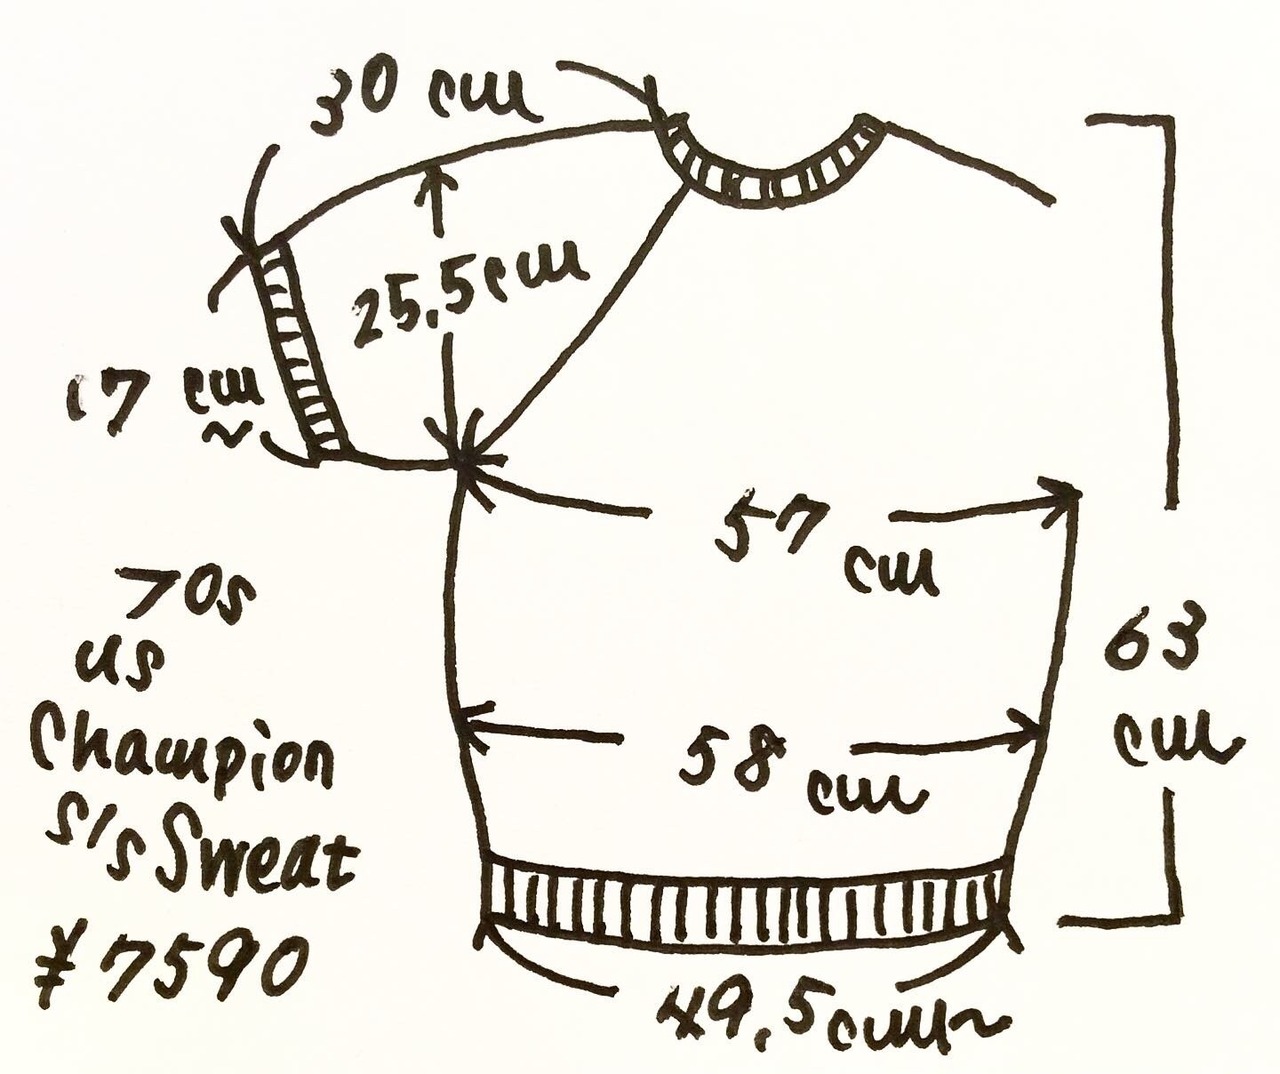 30 cm
25.5cm
17 cm
~
57 cm
58 cm
63 cm
49.5cm~
70s
us
Champion
s/s Sweat
¥7590